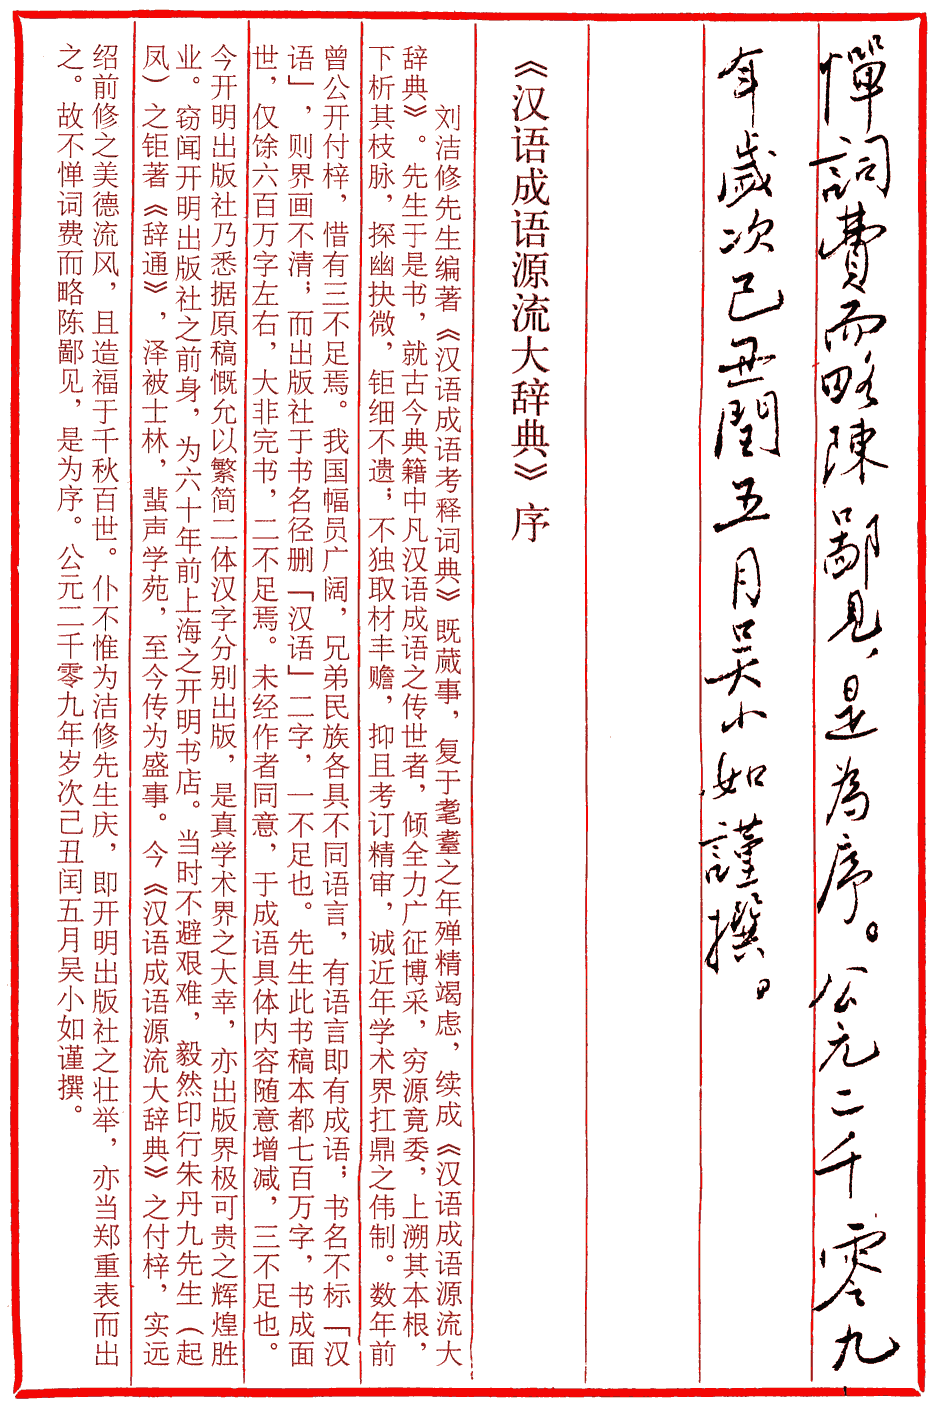 惮詞費而略陳鄙見，是為序。公元二千零九
年歲次己丑閏五月吴小如謹撰。
《汉语成语源流大辞典》序
刘洁修先生编著《汉语成语考释词典》既蒇事，复于耄耋之年殚精竭虑，续成《汉语成语源流大
辞典》。先生于是书，就古今典籍中凡汉语成语之传世者，倾全力广征博采，穷源竟委，上溯其本根，
下析其枝脉，探幽抉微，钜细不遗；不独取材丰赡，抑且考订精审，诚近年学术界扛鼎之伟制。数年前
曾公开付梓，惜有三不足焉。我国幅员广阔，兄弟民族各具不同语言，有语言即有成语；书名不标「汉
语」，则界画不清；而出版社于书名径删「汉语」二字，一不足也。先生此书稿本都七百万字，书成面
世，仅馀六百万字左右，大非完书，二不足焉。未经作者同意，于成语具体内容随意增减，三不足也。
今开明出版社乃悉据原稿慨允以繁简二体汉字分别出版，是真学术界之大幸，亦出版界极可贵之辉煌胜
业。窃闻开明出版社之前身，为六十年前上海之开明书店。当时不避艰难，毅然印行朱丹九先生（起
凤）之钜著《辞通》，泽被士林，蜚声学苑，至今传为盛事。今《汉语成语源流大辞典》之付梓，实远
绍前修之美德流风，且造福于千秋百世。仆不惟为洁修先生庆，即开明出版社之壮举，亦当郑重表而出
之。故不惮词费而略陈鄙见，是为序。公元二千零九年岁次己丑闰五月吴小如谨撰。